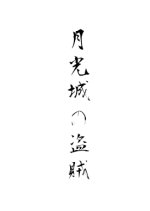 月光城の盗賊